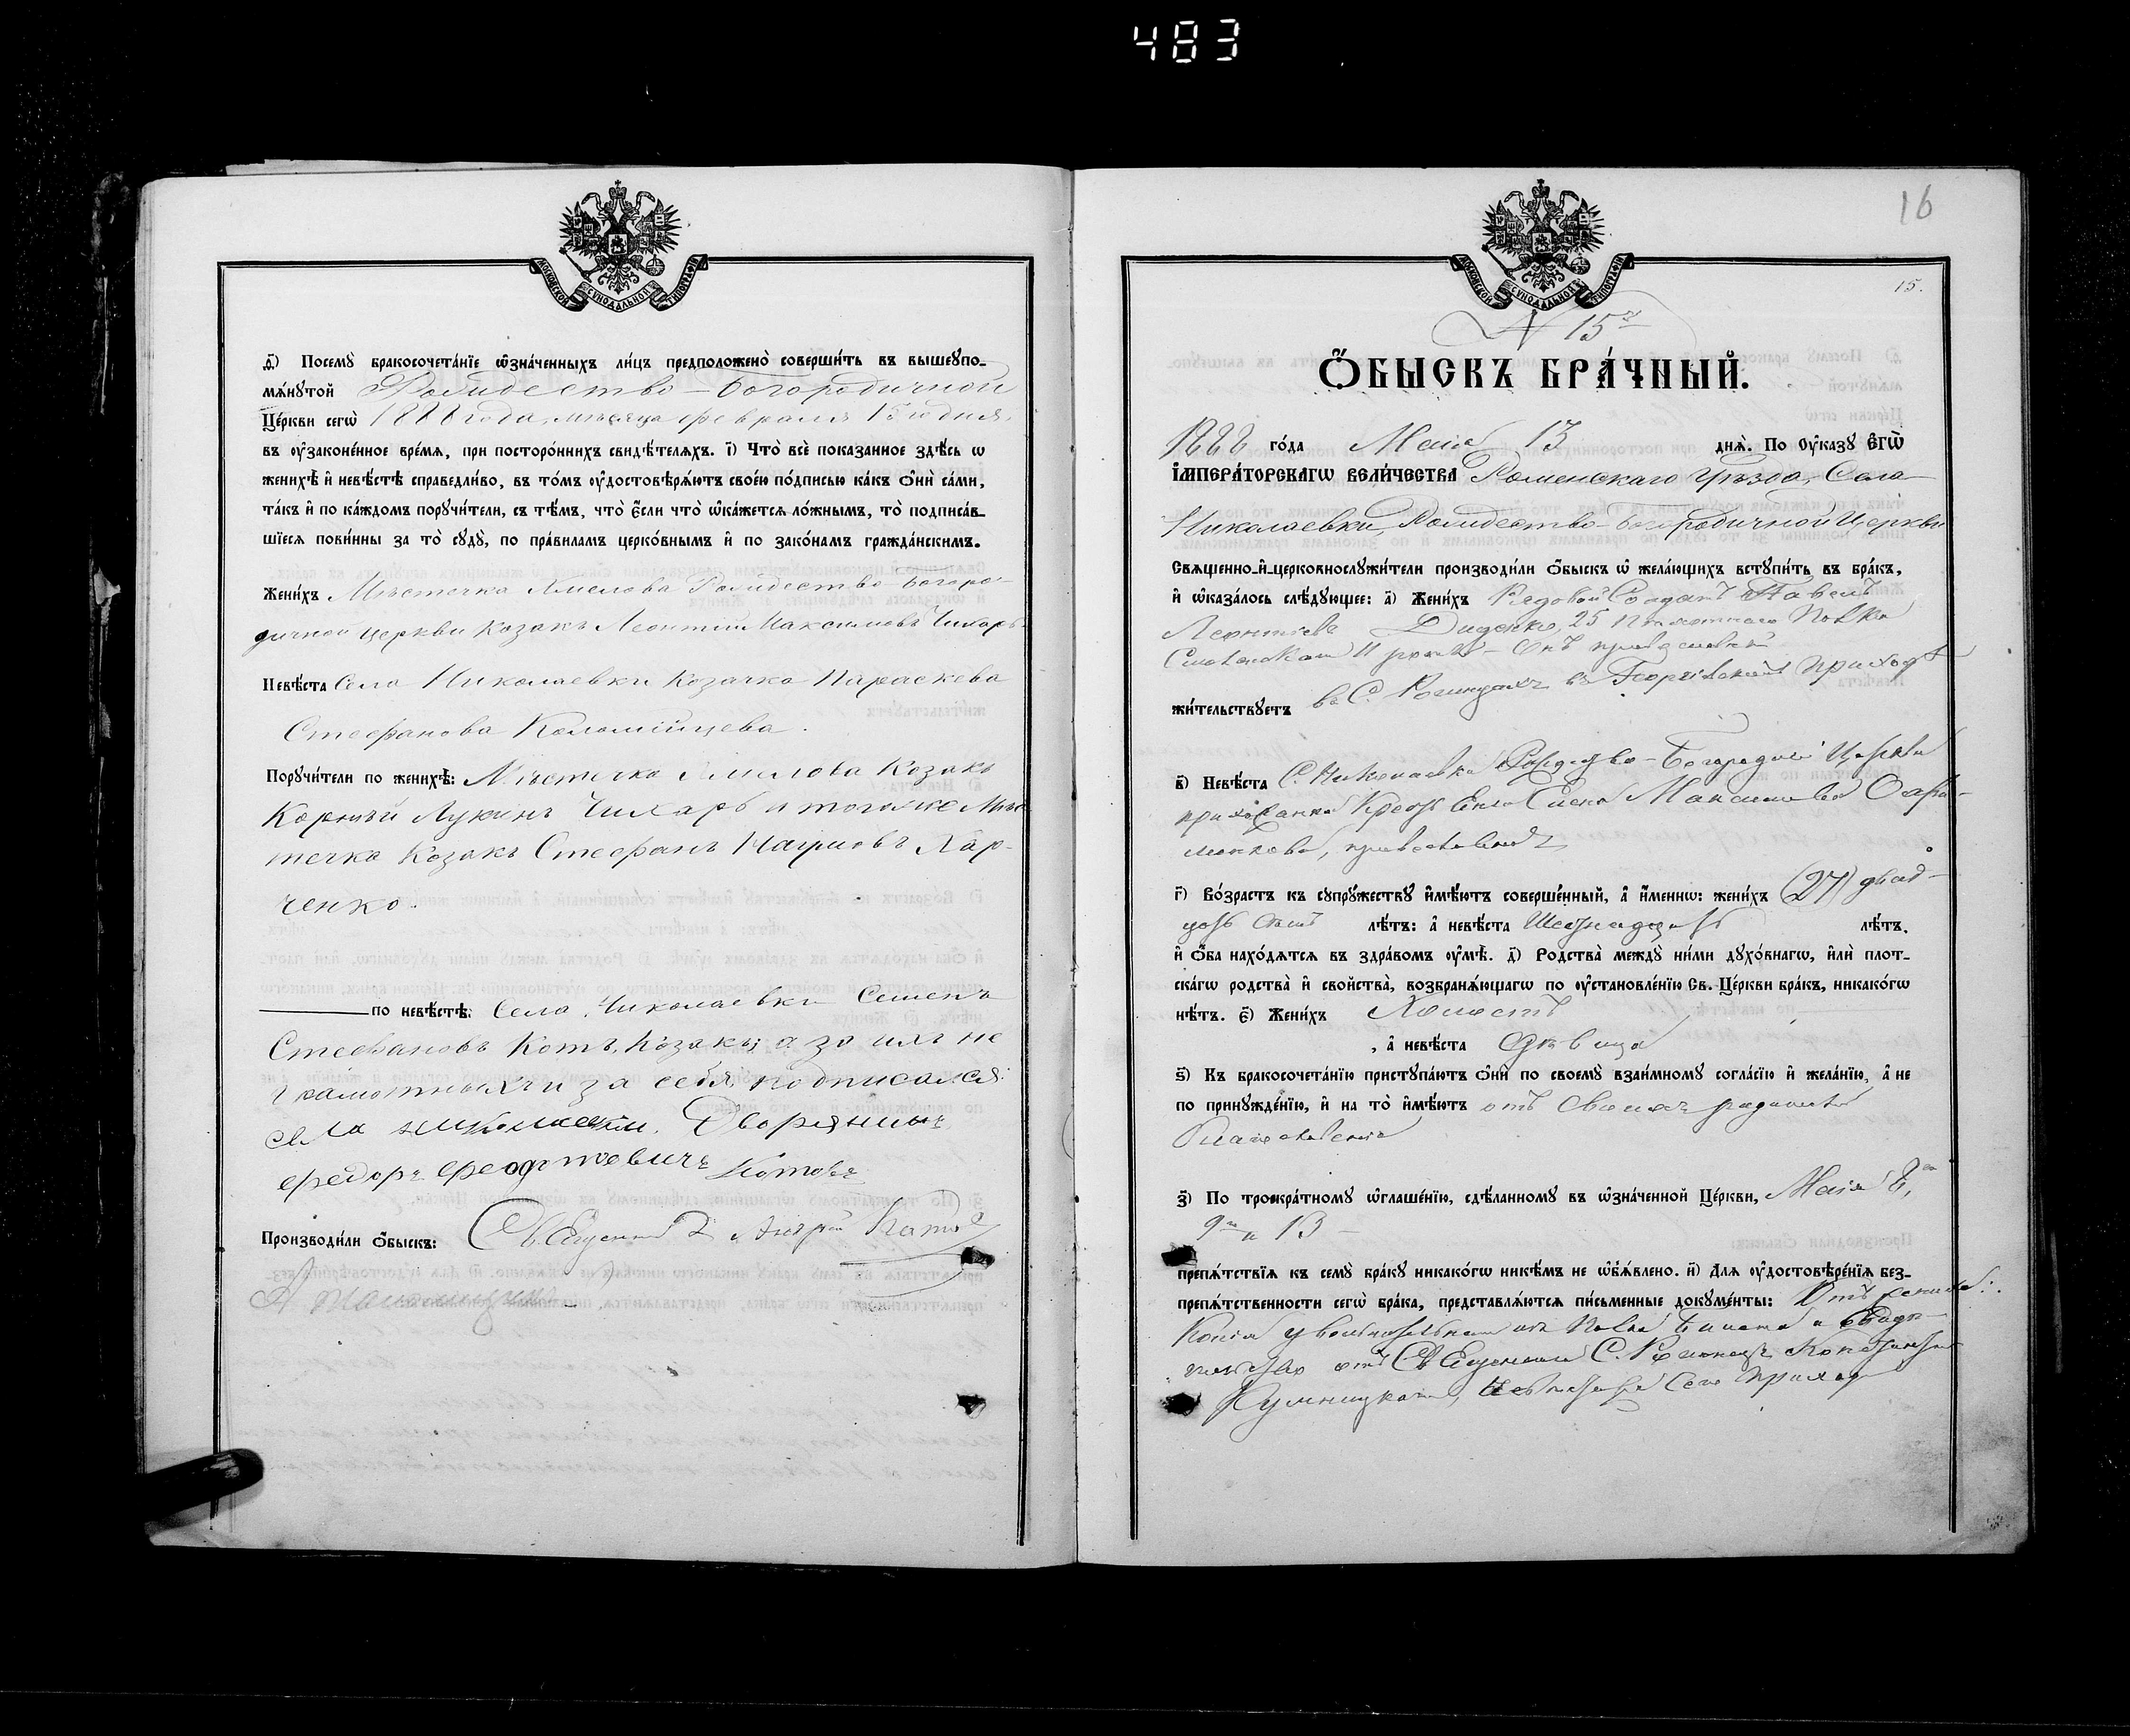 483
МОСКОВСКОЙ СУНОДАЛЬНОЙ ТИПОГРАФІИ
д҃) Посемꙋ̀ бракосочета́нїе ѡ҆зна́ченныхъ ли́цъ предположено̀ соверши́ть въ вышеꙋпо-
мѧ́нꙋтой Рождество-Богородичной
Це́ркви сегѡ̀ 1888 года, мѣсяца февраля 15го дня,
въ ᲂу҆законе́нное вре́мѧ, при посторо́ннихъ свидѣ́телѧхъ. і҃) Что̀ всѐ показанное здѣ́сь ѡ
женихѣ̀ и҆ невѣ́стѣ справедли́во, въ то́мъ ᲂу҆достовѣрѧ́ютъ свое́ю по́дписью ка́къ ѻ҆нѝ са́ми,
та́къ и҆ по ка́ждомъ порꙋчи́тели, съ тѣ́мъ, что̀ є҆́сли что̀ ѡ҆ка́жетсѧ ло́жнымъ, то̀ подписа́в-
шїесѧ пови́нны за то̀ сꙋдꙋ̀, по пра́виламъ церко́внымъ и҆ по зако́намъ гражда́нскимъ.
Жени́хъ Мѣстечка Хмелова Рождество-Богоро-
дичной церкви козакъ Леонтій Максимовъ Чихарь
Невѣ́ста Села Николаевки козачка Параскева
Стефанова Коломійцева.
Порꙋчи́тели по женихѣ̀: Мѣстечка Хмелова Козакъ
Корнѣй Лукинъ Чихарь и того же Мѣс-
течка Козакъ Стефанъ Наумовъ Хар-
ченко.
по невѣ́стѣ: Села Николаевки Семенъ
Стефановъ Котъ, козакъ; а за ихъ не
грамотныхъ и за себя подписался:
села Николаевки. Дворянинъ
Федоръ Котовъ
Производи́ли ѻ҆́быскъ: Священникъ Андрей
16
МОСКОВСКОЙ СУНОДАЛЬНОЙ ТИПОГРАФІИ
15.
N 15й
Ѻ҆́БЫСКЪ БРА́ЧНЫЙ.
1888 го́да Маія 13 днѧ̀. По ᲂу҆ка́зꙋ Є҆гѡ̀
І҆мпера́торскагѡ вели́чества Роменскаго Уѣзда, Села
Николаевки, Рождество-Богородичной Церкви
Свѧщенно-и҆-церковнослꙋжи́тели производи́ли ѻ҆́быскъ ѡ҆ жела́ющихъ встꙋпи́ть въ бра́къ,
и҆ ѡ҆каза́лось слѣ́дꙋющее: а҃) Жени́хъ Рядовой Солдатъ Павелъ
Леонтіевъ Диденко, 25 Пѣхотнаго Полка
Смоленскаго 11 роты - Онъ православный
жи́тельствꙋетъ въ С. въ Георгіевскомъ приходѣ
в҃) Невѣ́ста С. Николаевки Рождество-Богородичной Церкви
прихожанка Елена Максимова
православная
г҃) Во́зрастъ къ сꙋпрꙋ́жествꙋ и҆мѣ́ютъ соверше́нный, а҆ и҆́менно: жени́хъ (27) двад-
цать семь лѣ́тъ: а҆ невѣ́ста Шестнадцать лѣ́тъ.
и҆ ѻ҆́ба нахо́дѧтсѧ въ здра́вомъ ᲂу҆мѣ̀. д҃) Родства̀ междꙋ̀ ни́ми дꙋхо́внагѡ, и҆лѝ плот-
ска́гѡ родства̀ и҆ сво́йства̀, возбранѧ́ющагѡ по ᲂу҆становле́нїю Св. Це́ркви бра́къ, никако́гѡ
нѣ́тъ. є҃) Жени́хъ Холостъ
, а҆ невѣ́ста Дѣвица
ѕ҃) Къ бракосочета́нїю пристꙋпа́ютъ ѻ҆нѝ по своемꙋ̀ взаи́мномꙋ согла́сїю и҆ жела́нїю, а҆ не
по принꙋжде́нїю, и҆ на то̀ и҆мѣ́ютъ отъ своихъ родителей
Благословеніе
з҃) По троекра́тномꙋ ѡ҆глаше́нїю, сдѣ́ланномꙋ въ ѡ҆зна́ченной Це́ркви, Маія 8,
9го и 13 -
препѧ́тствїѧ къ семꙋ̀ бра́кꙋ никако́гѡ никѣ́мъ не ѡ҆б̾ѧ́влено. и҃) Длѧ ᲂу҆достовѣре́нїѧ без-
препѧ́тственности сегѡ̀ бра́ка, представлѧ́ютсѧ пи́сьменные докꙋме́нты: Отъ жениха:
Копія увольнительнаго изъ Полка Билета и
отъ Священника С. Константина
сего прихода